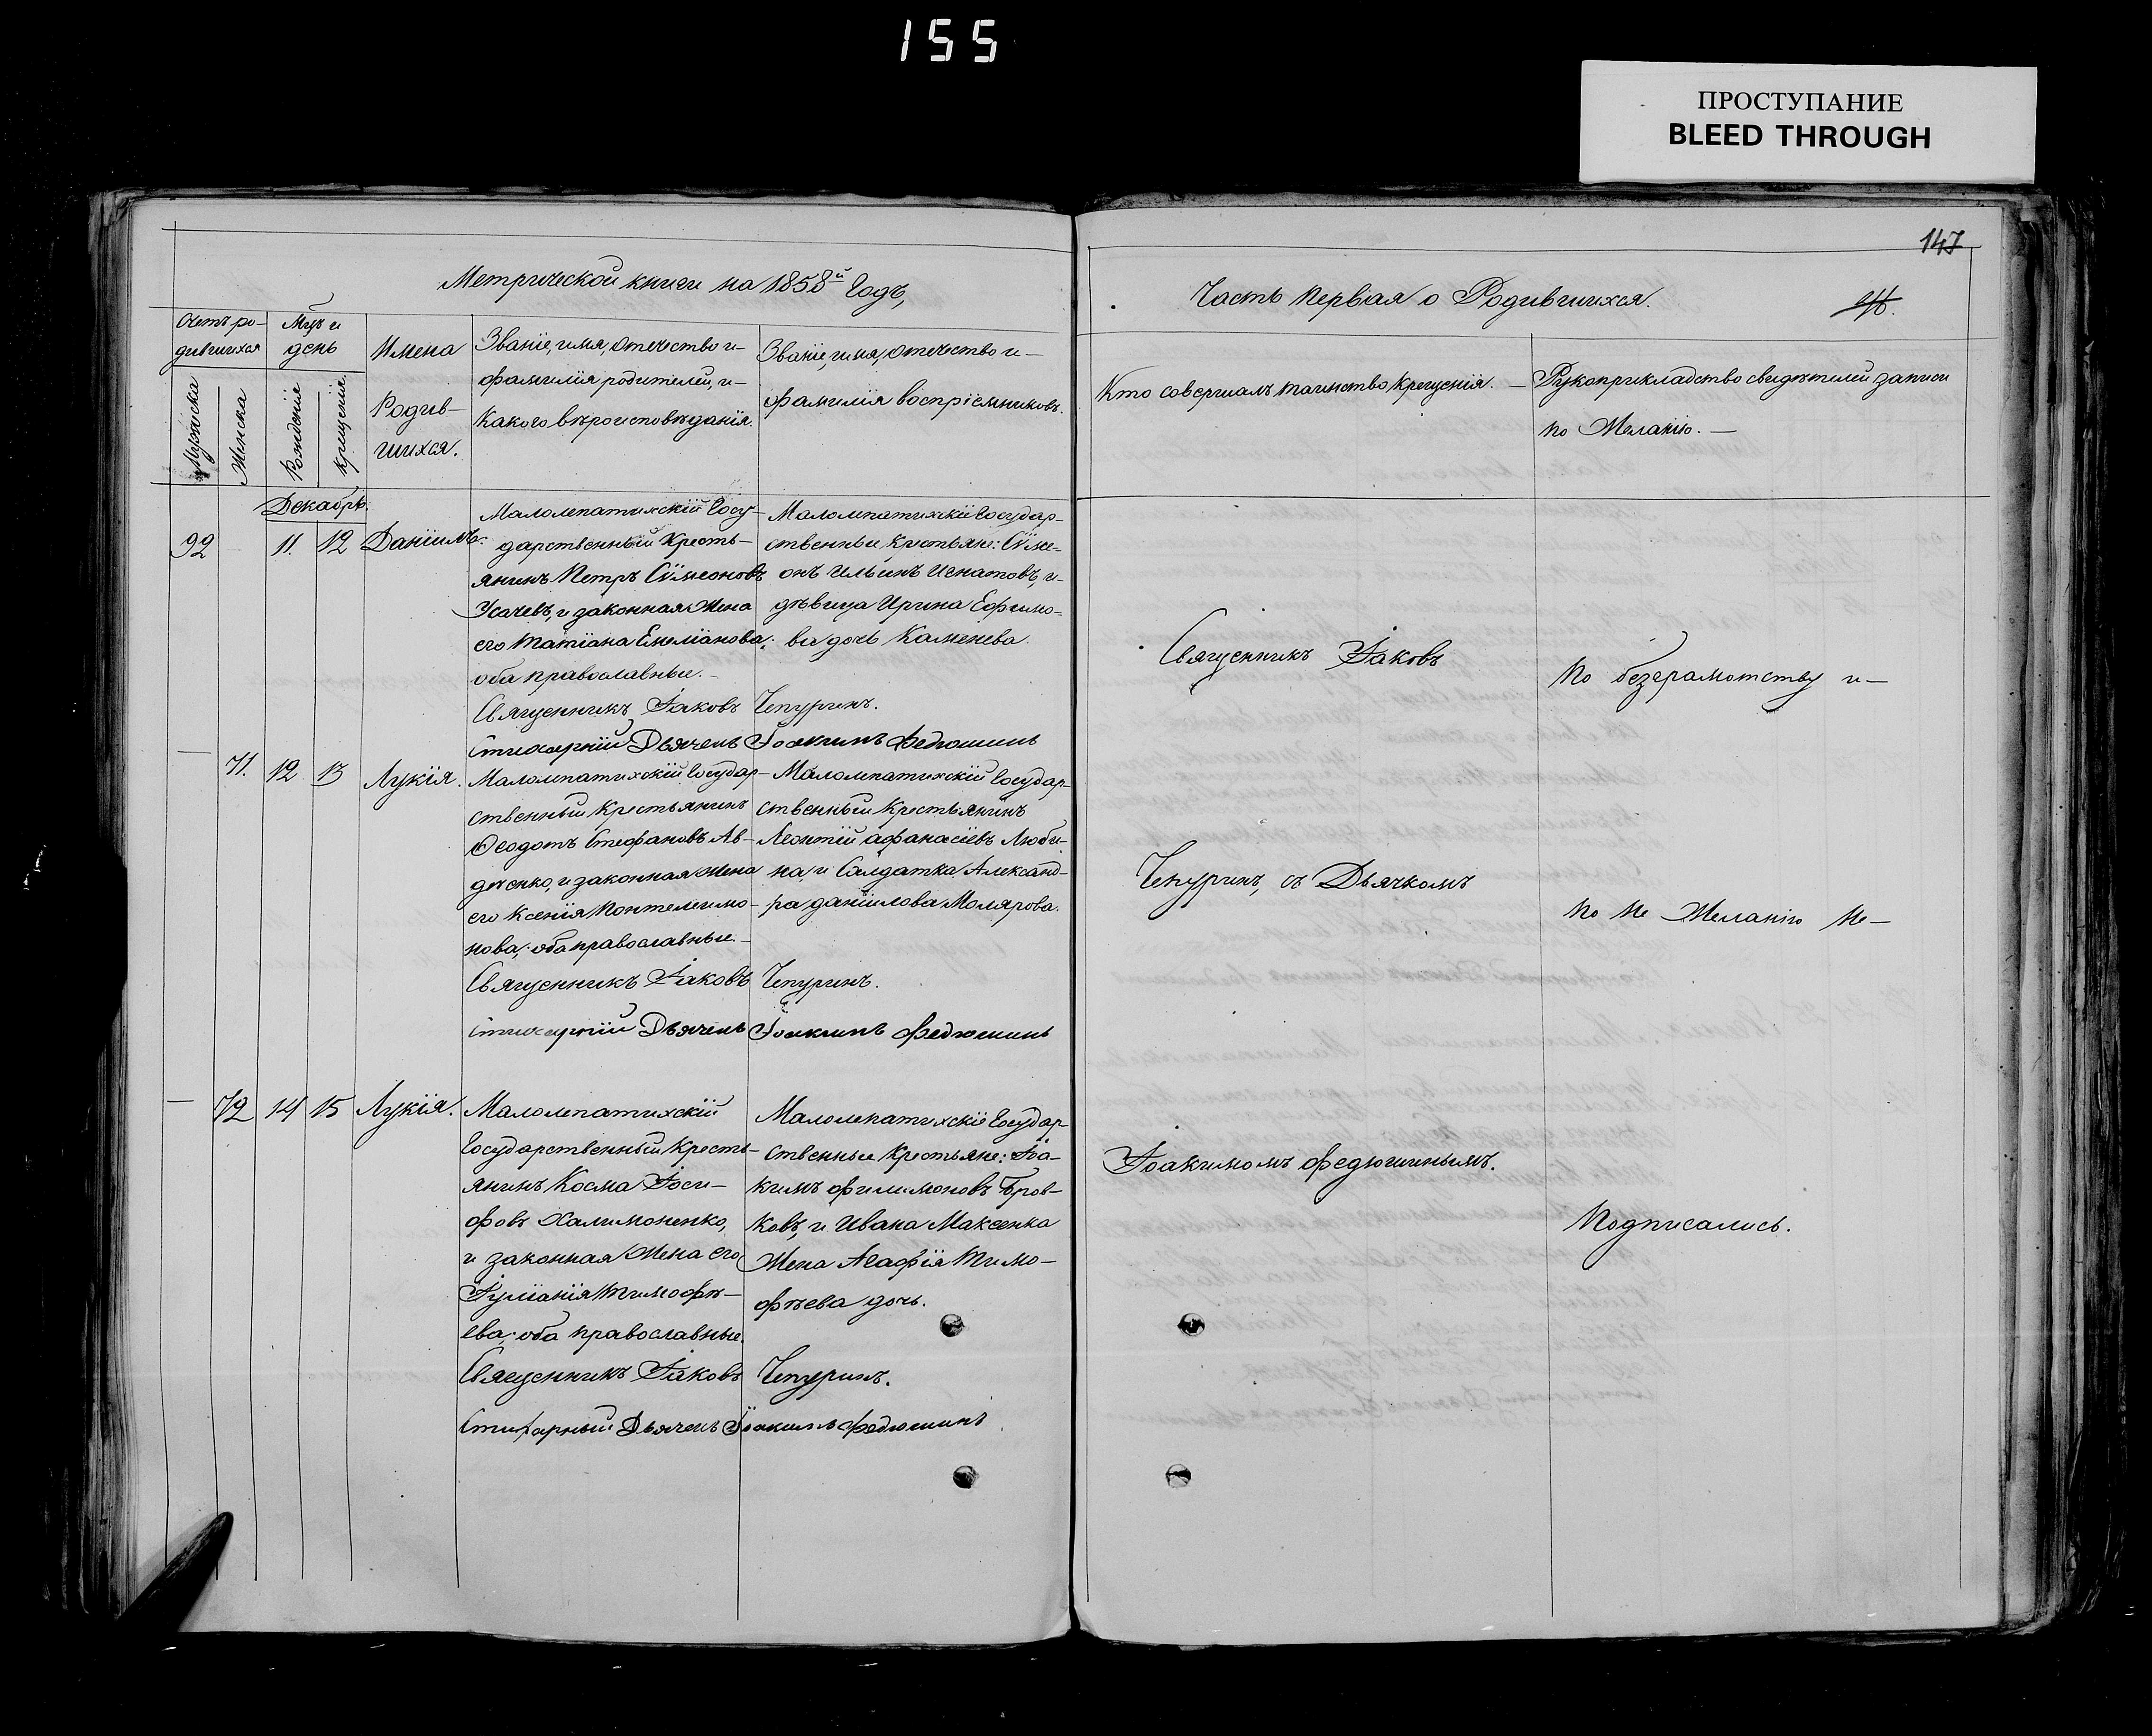 155
ПРОСТУПАНИЕ
BLEED THROUGH
147
Метрической книги на 1858й Годъ,
Часть Первая о Родившихся.
Счетъ ро-
дившихся
Мужеска
Женска
Мцъ и
день
Рожденія
Крещенія.
Имена
Родив-
шихся.
Званіе, имя, отечество и-
фамилія родителей, и-
Какого вѣроисповѣданія.
Званіе, имя, отечество и-
фамилія воспріемниковъ.
Кто совершалъ таинство крещенія.
Рукоприкладство свидѣтелей записи
по Желанію.
Декабрь.
92
11.
12
Даніилъ.
Малолепатихскій Госу-
дарственный Кресть-
янинъ Петръ Сѵмеоновъ
Усачевъ, и законная Жена
его Татіана Емеліанова;
оба православные.
Малолепатихскіе Государ-
ственные крестьяне: Сѵме-
онъ Ильинъ Игнатовъ, и-
дѣвица Ирина Ефимо-
ва дочь Каменева.
Священникъ Іаковъ Чепуринъ.
Стихарный Дьячекъ Іоакимъ Федюшинъ
71.
12
13
Лукія.
Малолепатихскій Государ-
ственный Крестьянинъ
Ѳеодотъ Стефановъ Ав-
деенко, и законная Жена
его Ксенія Понтелеимо-
нова; оба православные.
Малолепатихскій Государ-
ственный Крестьянинъ
Леонтій Афанасіевъ Люби-
на, и Салдатка Александ-
ра Даніилова Молярова.
Священникъ Іаковъ Чепуринъ.
Стихарный Дьячекъ Іоакимъ Федюшинъ
72
14
15
Лукія.
Малолепатихскій
Государственный Кресть-
янинъ Косма Іоси-
фовъ Халимоненко,
и законная Жена его
Іуліанія Тимофѣ-
ева; оба православные.
Малолепатихскіе Государ
ственные Крестьяне: Іоа-
кимъ Филимоновъ Бров-
ковъ, и Ивана Максенка
Жена Агафія Тимо-
фѣева дочь.
Священникъ Іаковъ Чепуринъ.
Стихарный Дьячекъ Іоакимъ Федюшинъ
Священникъ Іаковъ
Чепуринъ, съ Дьячкомъ
Іоакимомъ Федюшинымъ.
По безграмотству и-
по не Желанію Не-
Подписались.